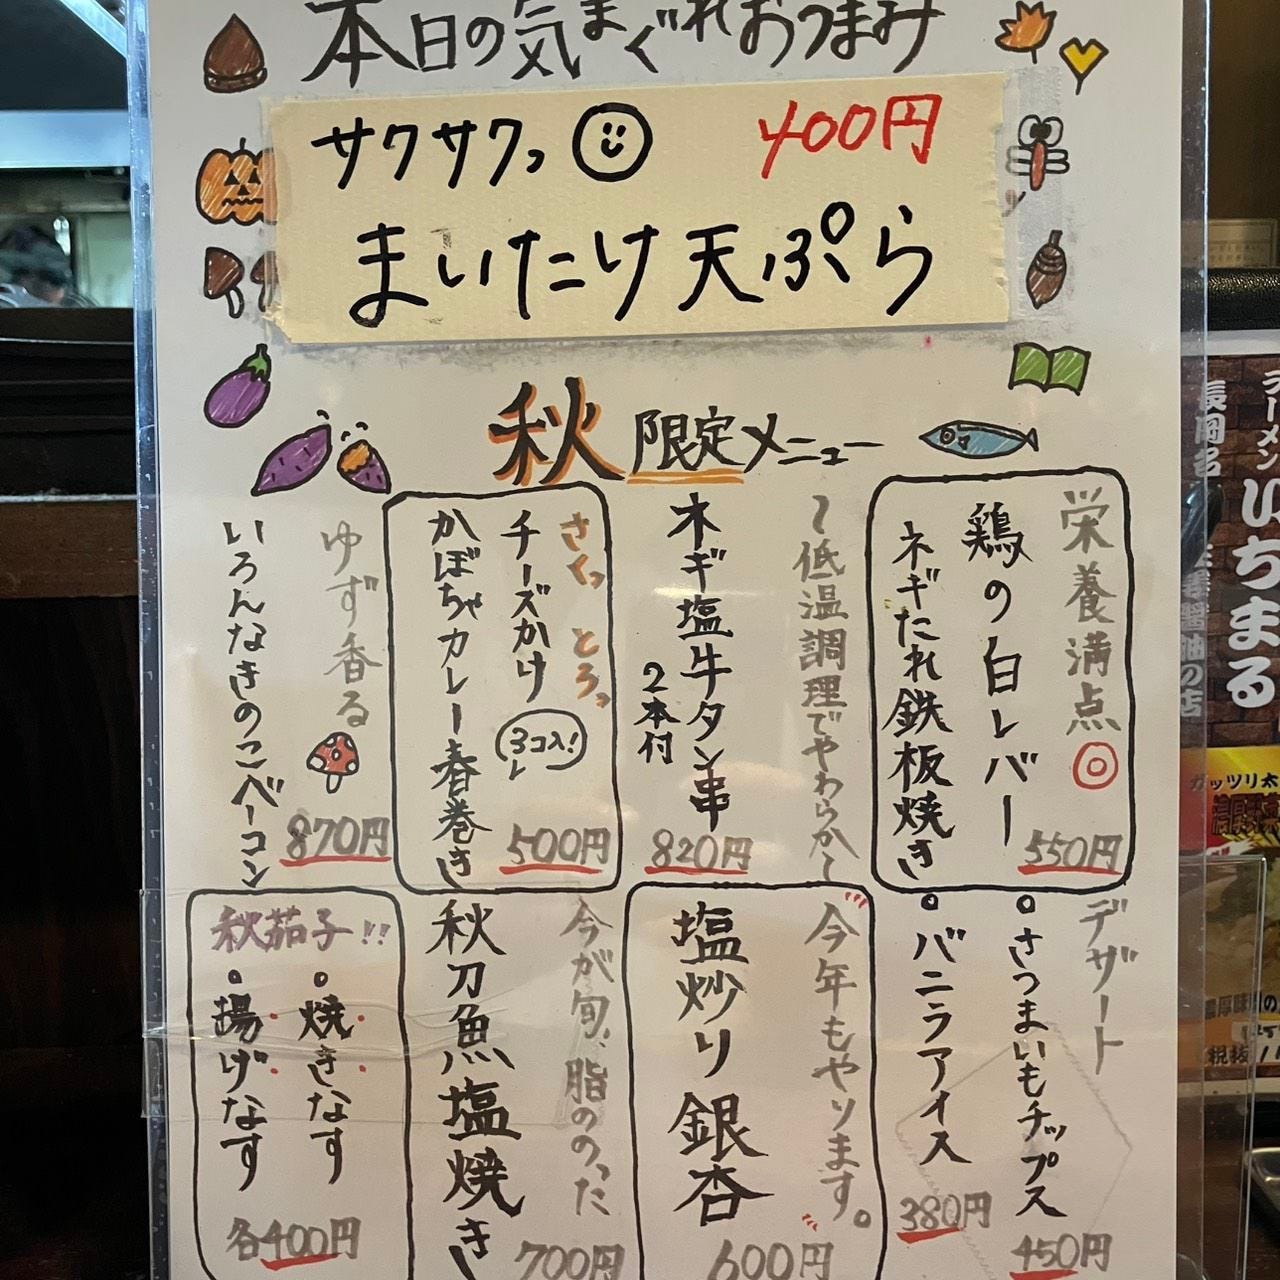 本日の気まぐれおつまみ
サクサクッ 400円
まいたけ天ぷら
秋限定メニュー
栄養満点◎
鶏の白レバー
ネギたれ鉄板焼き
550円
～低温調理でやわらか～
ネギ塩牛タン串
2本付
820円
さくっ とろっ
チーズかけ
3コ入!
かぼちゃカレー春巻き
500円
ゆず香る
いろんなきのこベーコン
870円
デザート
・さつまいもチップス
450円
・バニラアイス
380円
今年もやります。
塩炒り銀杏
600円
今が旬、脂ののった
秋刀魚塩焼き
700円
秋茄子!!
・焼きなす
・揚げなす
各400円
ラーメン
いちまる
長岡名
醤油の店
ガッツリ太
濃厚味
税抜